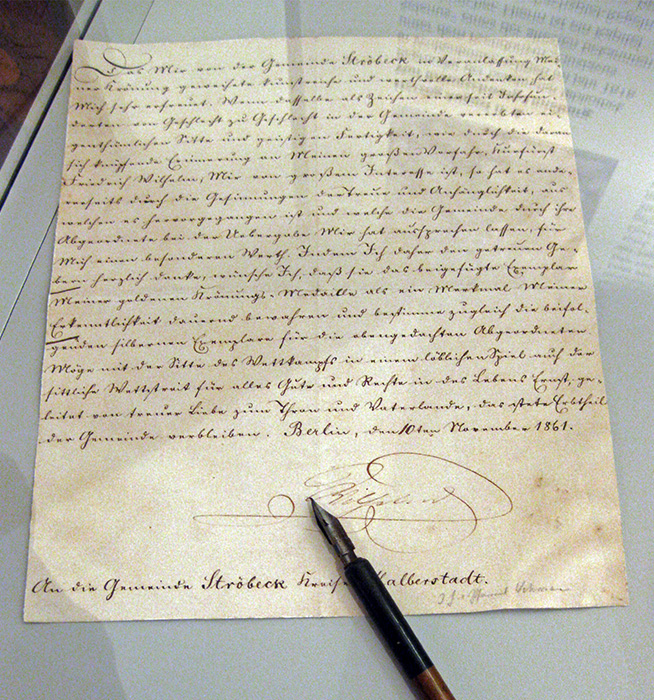 Das Mir von der Gemeinde Ströbeck in Veranlassung Mei-
ner Krönung geweihete kunstreiche und werthvolle Andenken hat
Mich sehr erfreut. Wenn dasselbe als Zeichen einer seit Jahrhun-
derten von Geschlecht zu Geschlecht in der Gemeinde vererbten ei-
genthümlichen Sitte und geistigen Fertigkeit, wie durch die daran
sich knüpfende Erinnerung an Meinen großen Vorfahr, Kurfürst
Friedrich Wilhelm, Mir von großem Interesse ist, so hat es ande-
rerseits durch die Gesinnungen der Treue und Anhänglichkeit, aus
welcher es hervorgegangen ist und welche die Gemeinde durch ihre
Abgeordnete bei der Uebergabe Mir hat aussprechen lassen, für
Mich einen besonderen Werth. Indem Ich daher den getreuen Ge-
bern herzlich danke, wünsche Ich, daß sie das beigefügte Exemplar
Meiner goldenen Krönungs-Medaille als ein Merkmal Meiner
Erkenntlichkeit dauernd bewahren und bestimme zugleich die beifol-
genden silbernen Exemplare für die ebengedachten Abgeordneten
Möge mit der Sitte des Wettkampfs in einem löblichen Spiel auch der
sittliche Wettstreit für alles Gute und Rechte in des Lebens Ernst, ge-
leitet von treuer Liebe zum Thron und Vaterlande, das stete Erbtheil
der Gemeinde verbleiben. Berlin, den 10ten November 1861.
Wilhelm
An die Gemeinde Ströbeck Halberstadt.